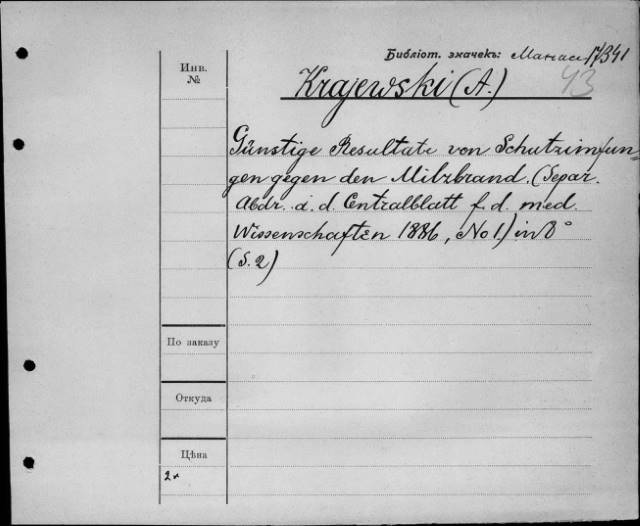 Библіот. значекъ: Манасс 17341
43
Инв.
№
Krajewski (A.)
Günstige Resultate von Schutzimfun-
gen gegen den Milzbrand. (Separ.
Abdr. a. d. Centralblatt f. d. med.
Wissenschaften 1886, No 1) in 8°
(S. 2)
По заказу
Откуда
Цѣна
2+